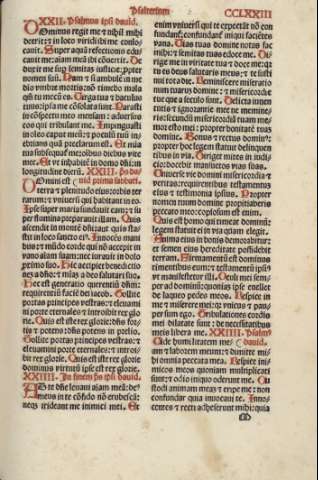 Psalterium
CCLXXIII
XXII. Psalmus ipsi dauid.
Dominus regit me et nihil mihi
deerit: et in loco viridi ibi me colloca-
uit. Super aquā refectionis edu-
cauit me: aīam meā cōuertit. De
duxit me sup semitas iusticie: ppter
nomen suū. Nam et si ambulē in me
dio vmbre mortis: nō timebo mala
qm tu mecū es. Uirga tua et baculus
tuus: ipsa me cōsolata sunt. Parasti
in cōspectu meo mensam: aduersus
eos qui tribulant me. Impinguasti
in oleo caput meū: et
Et mia
tua subsequat me: oībus diebus vite
mee. Et vt inhabitē in domo dñi: in
longitudinē dierū. XXIII. Ps da
Domini est uid prima sabbati.
terra et plenitudo eius: orbis ter
rarum: et vniuersi qui habitant in eo.
Quia ipse super maria fundauit eum: et su
per flumina preparauit illum. Quis
ascendet in montē dñi: aut quis sta-
bit in loco sancto ei. Innocēs mani
bus et mūdo corde: qui nō accepit in
vano aīam suam: nec iurauit in dolo
proximo suo. Hic accipiet benedictio
nez a dño: et miaz a deo salutari suo.
Hec est generatio querentiū dñm:
requirentiū faciē dei iacob. Tollite
portas principes vestras: et eleuami
ni porte eternales: et introibit rex
glorie. Quis est iste rex glorie: dñs for-
tis et potens: dñs potens in prelio.
Tollite portas principes vestras: et
eleuamini porte eternales: et introi-
bit rex glorie. Quis est iste rex glorie:
dominus virtutū ipse est rex glorie.
XXIIII. In finem ps ipsi dauid.
Ad te dñe leuaui aīam meā: de
us meus in te cōfido nō erubescā:
neqz irrideant me inimici mei. Et
enim vniuersi qui te expectāt nō con
fundent: confundant iniqui faciēte
vana. Uias tuas domine notas fac
mihi: et semitas tuas edoce me. Di
rige me in veritate tua et doce me: qz
tu es deus saluator meus: et te susti
nui tota die. Reminiscere miseratio
num tuarum domine: et misericordiar
tuarum que a seculo sunt. Delicta iuuen
tutis et ignorantie mee: ne memine-
ris: secundū misericordiā tuam me-
mor esto mei: propter bonitatē tuam
domine. Dulcis et rectus dominus:
propter hoc legem dabit delinquen
tibus in via. Diriget mites in iudi-
cio: docebit mansuetos vias suas.
Uniuerse vie domini misericordia et
veritas: requirentibus testamentum
eius et testimonia eius. Propter
nomen tuum domine propitiaberis
peccato meo: copiosum est enim.
Quis est homo qui timeat dominū:
legem statuit ei in via quam elegit.
Anima eius in bonis demorabitur:
et semen eius hereditate possidebit
terram. Firmamentū est dominus
timentibus eum: et testamentū ipsi
vt manifestetur illi. Oculi mei sem-
per ad dominū: quoniam ipse euellet
de laqueo pedes meos. Respice in
me et miserere mei: quia vnicus et pau
per sum ego. Tribulationes cordis
mei dilatate sunt: de necessitatibus
meis libera me. XXIIII. Psalm
Uide humilitatem me dauid.
am et laborem meum: et dimitte mi-
hi omnia peccata mea. Respice ini-
micos meos quoniam multiplicati
sunt: et odio iniquo oderunt me. Cu
stodi animam meam et eripe me: non
confundar quia inuocaui te. Inno-
centes et recti adheserunt mihi: quia